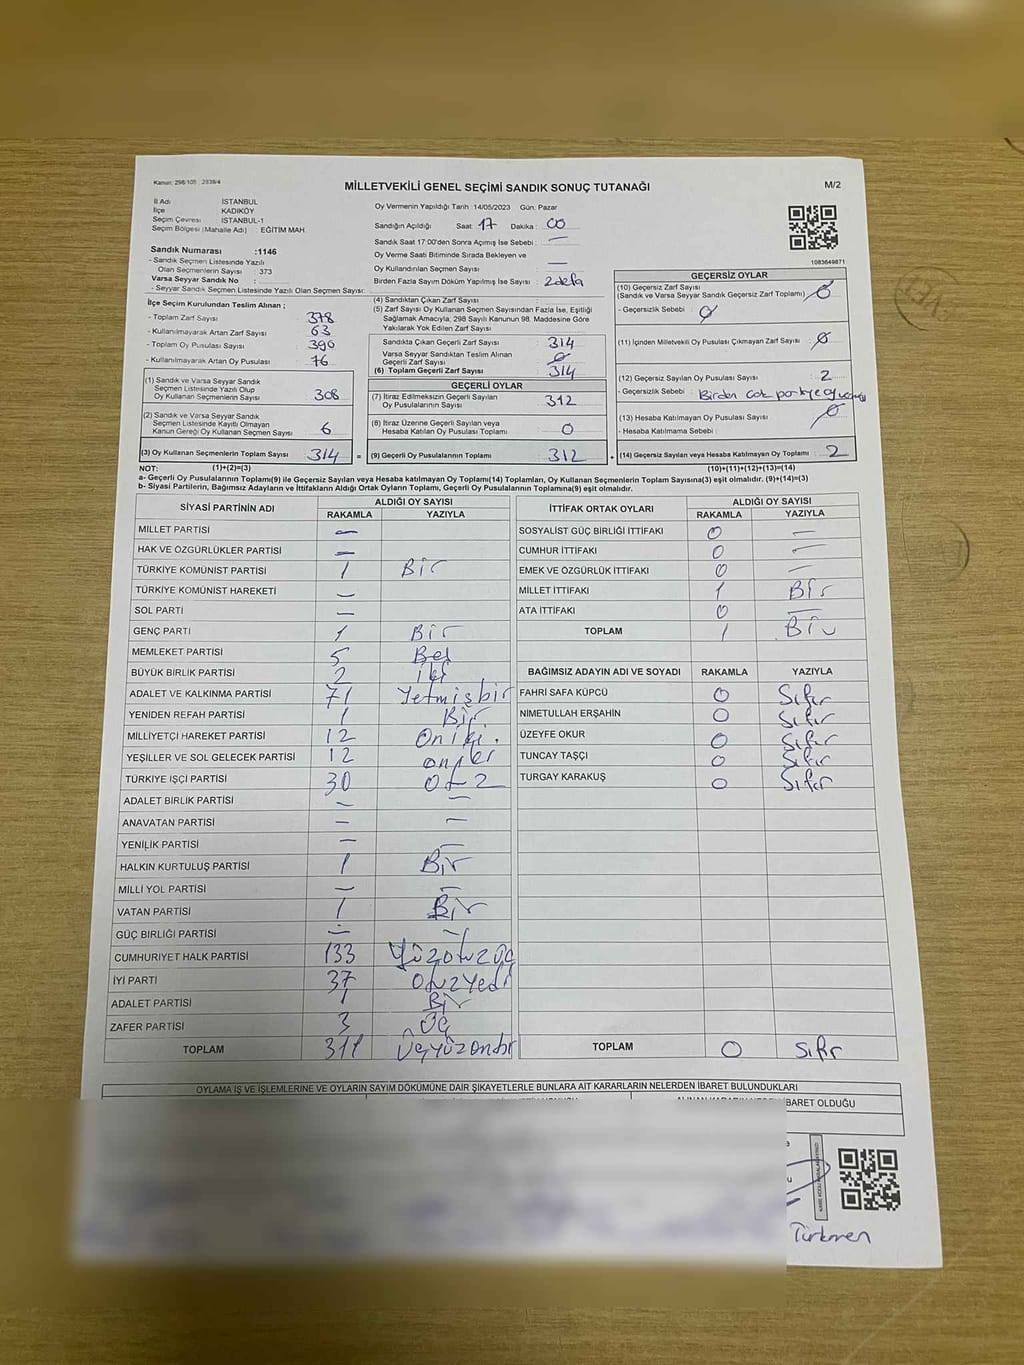 Kanun: 298/105 : 2839/4
MİLLETVEKİLİ GENEL SEÇİMİ SANDIK SONUÇ TUTANAĞI
M/2
İl Adı İSTANBUL
İlçe KADIKÖY
Seçim Çevresi İSTANBUL-1
Seçim Bölgesi (Mahalle Adı) EĞİTİM MAH.
Sandık Numarası :1146
- Sandık Seçmen Listesinde Yazılı
Olan Seçmenlerin Sayısı : 373
Varsa Seyyar Sandık No :
- Seyyar Sandık Seçmen Listesinde Yazılı Olan Seçmen Sayısı:
Oy Vermenin Yapıldığı Tarih :14/05/2023 Gün: Pazar
Sandığın Açıldığı Saat: 17 Dakika : 00
Sandık Saat 17:00'den Sonra Açımış İse Sebebi : —
Oy Verme Saati Bitiminde Sırada Bekleyen ve
Oy Kullandırılan Seçmen Sayısı : —
Birden Fazla Sayım Döküm Yapılmış İse Sayısı : 2 defa
1083649871
İlçe Seçim Kurulundan Teslim Alınan ;
- Toplam Zarf Sayısı : 378
- Kullanılmayarak Artan Zarf Sayısı : 63
- Toplam Oy Pusulası Sayısı : 390
- Kullanılmayarak Artan Oy Pusulası : 76
(1) Sandık ve Varsa Seyyar Sandık
Seçmen Listesinde Yazılı Olup
Oy Kullanan Seçmenlerin Sayısı : 308
(2) Sandık ve Varsa Seyyar Sandık
Seçmen Listesinde Kayıtlı Olmayan
Kanun Gereği Oy Kullanan Seçmen Sayısı : 6
(3) Oy Kullanan Seçmenlerin Toplam Sayısı : 314
(4) Sandıktan Çıkan Zarf Sayısı :
(5) Zarf Sayısı Oy Kullanan Seçmen Sayısından Fazla İse, Eşitliği
Sağlamak Amacıyla; 298 Sayılı Kanunun 98. Maddesine Göre
Yakılarak Yok Edilen Zarf Sayısı :
Sandıkta Çıkan Geçerli Zarf Sayısı : 314
Varsa Seyyar Sandıktan Teslim Alınan
Geçerli Zarf Sayısı : 0
(6) Toplam Geçerli Zarf Sayısı : 314
GEÇERLİ OYLAR
(7) İtiraz Edilmeksizin Geçerli Sayılan
Oy Pusulalarının Sayısı : 312
(8) İtiraz Üzerine Geçerli Sayılan veya
Hesaba Katılan Oy Pusulası Toplamı : 0
= (9) Geçerli Oy Pusulalarının Toplamı : 312
GEÇERSİZ OYLAR
(10) Geçersiz Zarf Sayısı
(Sandık ve Varsa Seyyar Sandık Geçersiz Zarf Toplamı) : 0
- Geçersizlik Sebebi : 0
(11) İçinden Milletvekili Oy Pusulası Çıkmayan Zarf Sayısı : 0
(12) Geçersiz Sayılan Oy Pusulası Sayısı : 2
- Geçersizlik Sebebi : Birden çok partiye oy
(13) Hesaba Katılmayan Oy Pusulası Sayısı : 0
- Hesaba Katılmama Sebebi :
+ (14) Geçersiz Sayılan veya Hesaba Katılmayan Oy Toplamı : 2
NOT: (1)+(2)=(3) (10)+(11)+(12)+(13)=(14)
a- Geçerli Oy Pusulalarının Toplamı(9) ile Geçersiz Sayılan veya Hesaba Katılmayan Oy Toplamı(14) Toplamları, Oy Kullanan Seçmenlerin Toplam Sayısına(3) eşit olmalıdır. (9)+(14)=(3)
b- Siyasi Partilerin, Bağımsız Adayların ve İttifakların Aldığı Ortak Oyların Toplamı, Geçerli Oy Pusulalarının Toplamına(9) eşit olmalıdır.
SİYASİ PARTİNİN ADI ALDIĞI OY SAYISI
RAKAMLA YAZIYLA
MİLLET PARTİSİ —
HAK VE ÖZGÜRLÜKLER PARTİSİ —
TÜRKİYE KOMÜNİST PARTİSİ 1 Bir
TÜRKİYE KOMÜNİST HAREKETİ —
SOL PARTİ —
GENÇ PARTİ 1 Bir
MEMLEKET PARTİSİ 5 Beş
BÜYÜK BİRLİK PARTİSİ 2 iki
ADALET VE KALKINMA PARTİSİ 71 Yetmişbir
YENİDEN REFAH PARTİSİ 1 Bir
MİLLİYETÇİ HAREKET PARTİSİ 12 Oniki.
YEŞİLLER VE SOL GELECEK PARTİSİ 12 oniki
TÜRKİYE İŞÇİ PARTİSİ 30 Otuz
ADALET BİRLİK PARTİSİ — —
ANAVATAN PARTİSİ — —
YENİLİK PARTİSİ — —
HALKIN KURTULUŞ PARTİSİ 1 Bir
MİLLİ YOL PARTİSİ — —
VATAN PARTİSİ 1 Bir
GÜÇ BİRLİĞİ PARTİSİ — —
CUMHURİYET HALK PARTİSİ 133 Yüzotuzüç
İYİ PARTİ 37 Otuzyedi
ADALET PARTİSİ 1 Bir
ZAFER PARTİSİ 3 Üç
TOPLAM 311 Üçyüzonbir
İTTİFAK ORTAK OYLARI ALDIĞI OY SAYISI
RAKAMLA YAZIYLA
SOSYALİST GÜÇ BİRLİĞİ İTTİFAKI 0 —
CUMHUR İTTİFAKI 0 —
EMEK VE ÖZGÜRLÜK İTTİFAKI 0 —
MİLLET İTTİFAKI 1 Bir
ATA İTTİFAKI 0 —
TOPLAM 1 Bir
BAĞIMSIZ ADAYIN ADI VE SOYADI RAKAMLA YAZIYLA
FAHRİ SAFA KÜPCÜ 0 Sıfır
NİMETULLAH ERŞAHİN 0 Sıfır
ÜZEYFE OKUR 0 Sıfır
TUNCAY TAŞÇI 0 Sıfır
TURGAY KARAKUŞ 0 Sıfır
TOPLAM 0 Sıfır
OYLAMA İŞ VE İŞLEMLERİNE VE OYLARIN SAYIM DÖKÜMÜNE DAİR ŞİKAYETLERLE BUNLARA AİT KARARLARIN NELERDEN İBARET BULUNDUKLARI
İBARET OLDUĞU
Türkmen